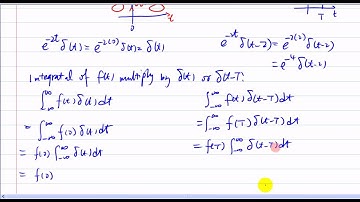 0
t
T t
e^{-2t} δ(t) = e^{-2(0)} δ(t) = δ(t)
e^{-2t} δ(t-2) = e^{-2(2)} δ(t-2)
= e^{-4} δ(t-2)
Integral of f(t) multiply by δ(t) or δ(t-T):
∫_{-∞}^{∞} f(t) δ(t) dt
= ∫_{-∞}^{∞} f(0) δ(t) dt
= f(0) ∫_{-∞}^{∞} δ(t) dt
= f(0)
∫_{-∞}^{∞} f(t) δ(t-T) dt
= ∫_{-∞}^{∞} f(T) δ(t-T) dt
= f(T) ∫_{-∞}^{∞} δ(t-T) dt